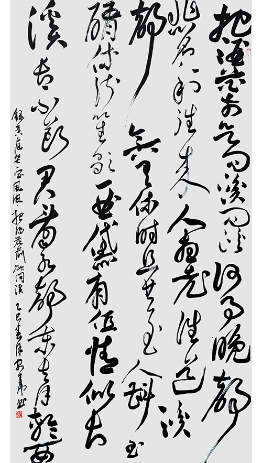 把酒花前欲问溪问溪何事晚声
悲名利往来人尽老谁道溪
声今古有休时且共玉人斟玉
醑休诉笙歌一曲黛眉低情似长
溪长不断君看水声东去月轮西
录黄庭坚定风波把酒花前欲问溪乙巳